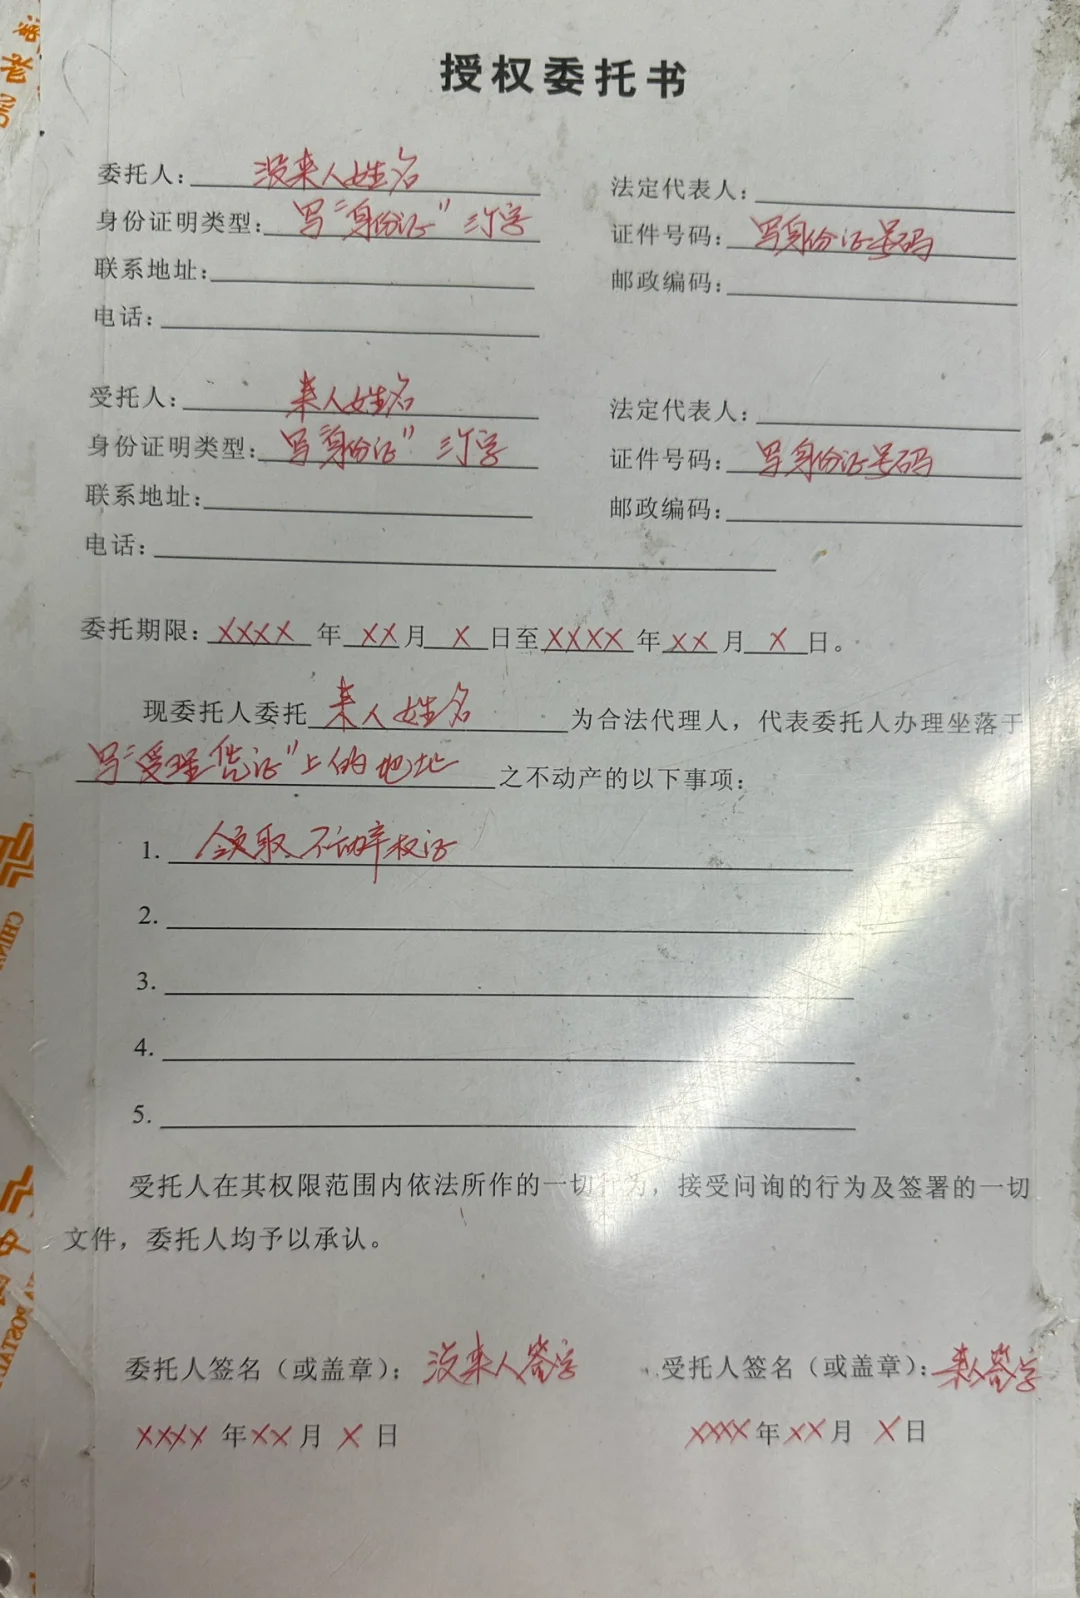 授权委托书
委托人：没来人姓名 法定代表人：
身份证明类型：写“身份证”三个字 证件号码：写身份证号码
联系地址： 邮政编码：
电话：
受托人：来人姓名 法定代表人：
身份证明类型：写“身份证”三个字 证件号码：写身份证号码
联系地址： 邮政编码：
电话：
委托期限：XXXX年XX月X日至XXXX年XX月X日。
现委托人委托来人姓名为合法代理人，代表委托人办理坐落于
写“受理凭证”上的地址之不动产的以下事项：
1. 领取不动产权证
2.
3.
4.
5.
受托人在其权限范围内依法所作的一切行为，接受问询的行为及签署的一切
文件，委托人均予以承认。
委托人签名（或盖章）：没来人签字 受托人签名（或盖章）：来人签字
XXXX年XX月X日 XXXX年XX月X日